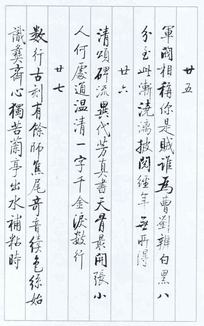 廿五
軍閥相稱你是賊誰為曹劉辨白黑八
分至此漸澆漓披閱經年無所得
廿六
清頌碑流異代芳真書天骨最開張小
人何處通溫清一字千金淚數行
廿七
數行古刻有餘師焦尾奇音續色絲始
識彞齋心獨苦蘭亭出水補粘時